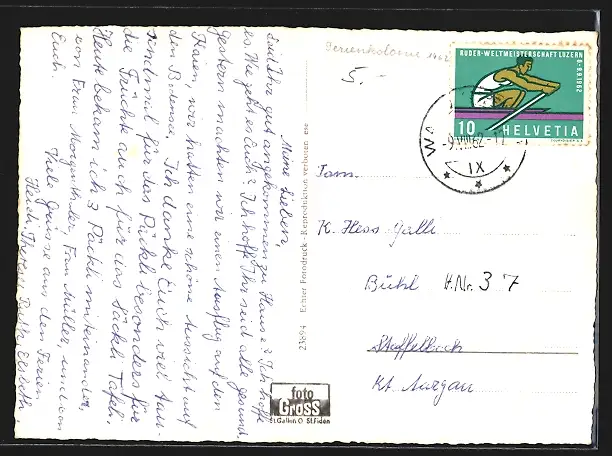 Ferienkolonie 1962
5.-
RUDER-WELTMEISTERSCHAFT LUZERN
6.-9.9.1962
10 HELVETIA
-9.VIII.62-17
IX
Meine Lieben,
Seid Ihr gut angekommen zu Hause? Ich hoffe
es. Wie geht es Euch? Ich hoffe Ihr seid alle gesund.
Gestern machten wir einen Ausflug auf den
Kaien, wir hatten eine schöne Aussicht auf
den Bodensee. Ich danke Euch viel tau-
sindmal für das Päckli besonders für
die Früchte auch für das Säckli Täfeli.
Heute bekam ich 3 Päckli miteinander,
von Frau Morgenthaler, Frau Müller und von
Euch.
Viele Grüsse aus den Ferien
Theres
Echter Fotodruck - Reproduktion verboten
23694
foto
Gross
St.Gallen O St.Fiden
Fam.
K. Hess-Galli
Bühl H.Nr. 37
Staffelbach
Kt. Aargau